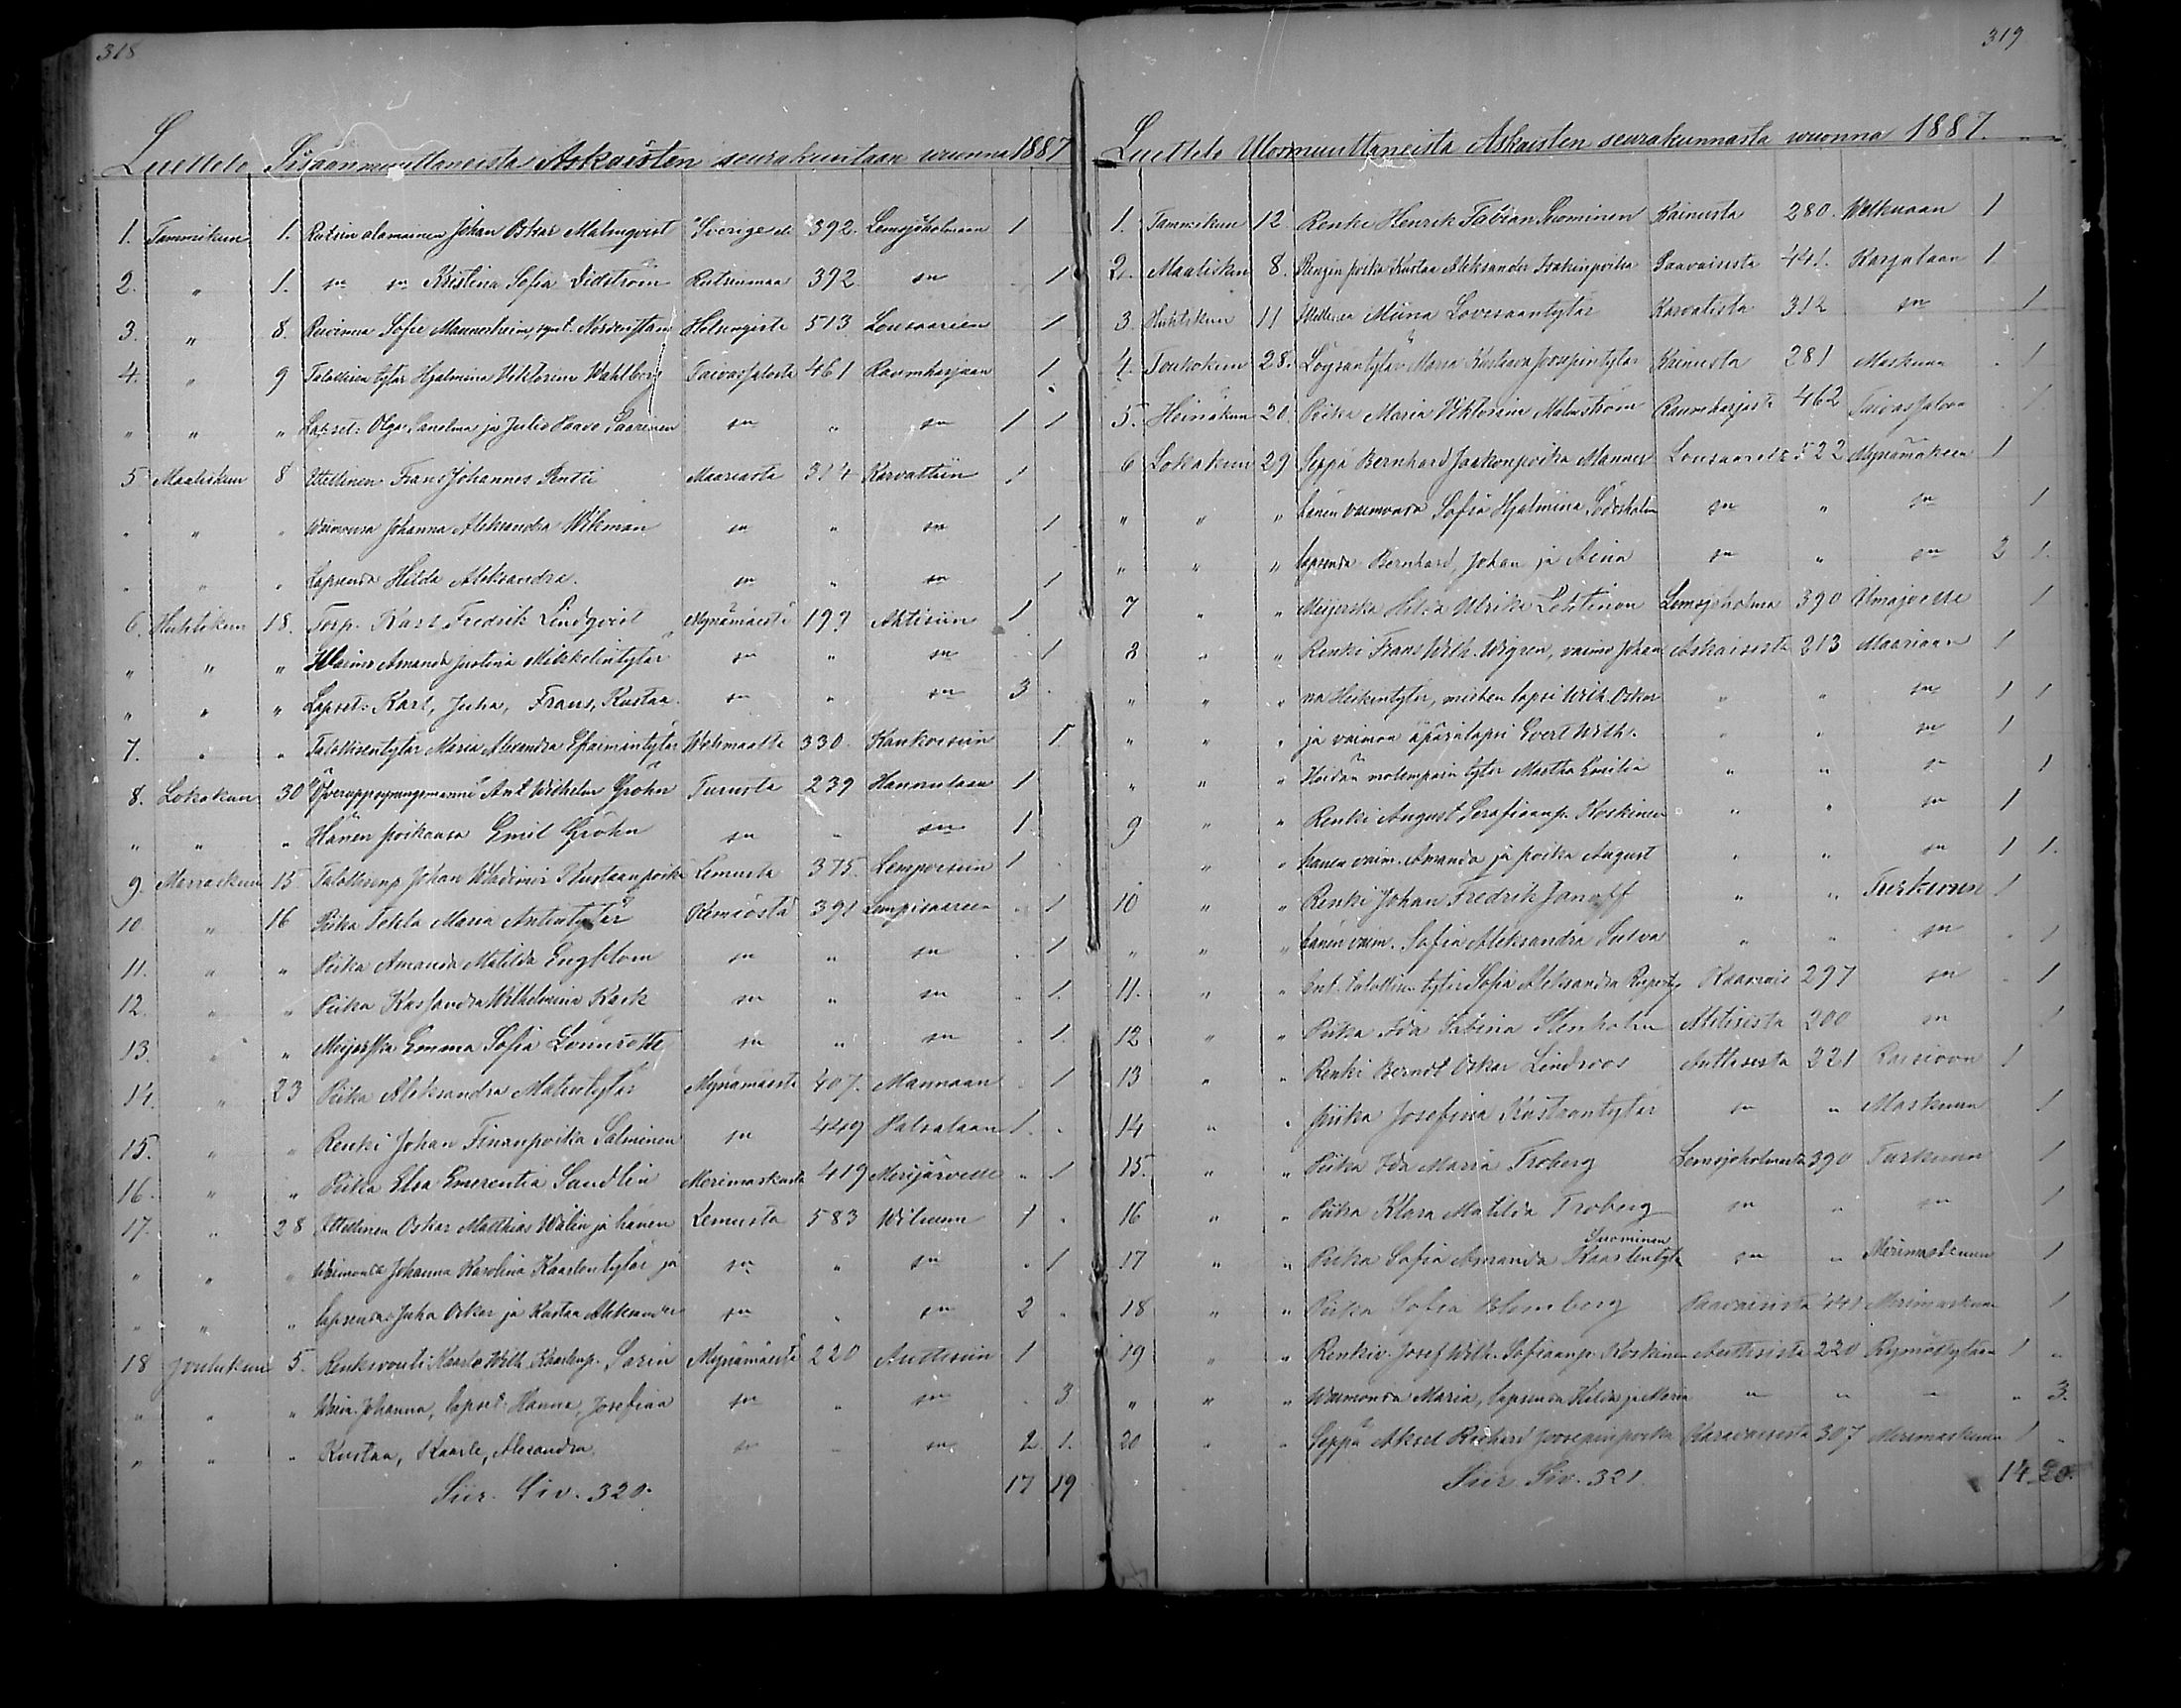 318
Luettelo Sisäänmuuttaneista Askaisten seurakuntaan wuonna 1887
1. Tammikuun 1. Ruotsin alamainen Johan Oskar Malmqvist Sverige 392. Lemsjöholmaan 1
2. " 1. sn sn Kristina Sofia Vidström Ruotsinmaa 392 sn 1
3. " 8. Sofie Mannerheim, synt. Nordenstam Helsingistä 513 Lousaarien 1
4. " 9 Talollisen tytär Hjalmina Viktorina Wahlberg Taivassalosta 461 Raumharjaan 1
" " " Lapset: Olga Sanelma ja Julio Paavo Saarinen sn " sn 1 1
5 Maaliskuun 8 Itsellinen Frans Johannes Pentti Maariasta 314 Karvattiin 1
" " " Waimonsa Johanna Aleksandra Wikman sn " sn 1
" " " Lapsensa Hilda Aleksandra. sn " sn 1
6. Huhtikuun 18. Torp. Karl Fredrik Lindqvist Mynämäestä 197 Ahtisiin 1
" " " Waimo Amanda Justina Mikkelintytär sn " sn 1
" " " Lapset: Karl, Juha, Frans, Kustaa. sn " sn 3
7. " " Talollisentytär Maria Alexandra Efraimintytär Wehmaalta 330. Kankoisiin 1
8. Lokakuun 30 Ant Wilhelm Gröhn Turusta 239 Hannulaan 1
" " " Hänen poikansa Emil Gröhn sn " sn 1
9. Marraskuun 15 Talollisenp. Johan Wladimir Kustaanpoika Lemusta 375. Lempoisiin 1
10. " 16 Piika Tekla Maria Antintytär Kemiöstä 391 Lempisaareen " 1
11. " " Piika Amanda Matilda Engblom sn " sn . 1
12. " " Piika Kassandra Wilhelmina Kack sn " sn " 1.
13. " " Meijerska Emma Sofia Lönnrotte sn " sn . 1.
14. " 23 Piika Aleksandra Matintytär Mynämäestä 407. Mannaan . 1
15. " " Renki Johan Finanpoika Salminen sn 449 Patalaan 1. .
16. " " Piika Elsa Emerentia Sandlin Merimaskusta 419 Merijärvelle " 1
17. " 28 Itsellinen Oskar Matthias Wälin ja hänen Lemusta 583 Wiluun 1 "
" " " Waimonsa Johanna Karolina Kaarlentytär ja sn " sn " 1
" " " lapsensa Juha Oskar ja Kustaa Aleksander sn " sn 2 "
18 Joulukuun 5. Renkivouti Kaarle Wilh. Kaarlenp. Sarin Mynämäestä 220 Auttisiin 1
" " " Waim. Johanna, lapset: Hanna, Josefina sn " sn . 3
" " " Kustaa, Kaarle, Alexandra sn " sn 2 1.
Siir. Siv. 320. 17 19
319
Luettelo Ulosmuuttaneista Askaisten seurakunnasta wuonna 1887.
1. Tammikuun 12. Renki Henrik Fabian Suominen Kainusta 280. Welkuaan 1
2. Maaliskuun 8. Rengin poika Kustaa Aleksander Isakinpoika Saavaisista 441. Karjalaan 1
3. Huhtikuun 11 Miina Lovisaantytär Karvatista 312 sn 1
4. Toukokuun 28. Maria Kustaava Joosepintytär Kainusta 281 Maskuun . 1
5. Heinäkuun 20. Piika Maria Viktorina Malmström Raumharjasta 462 Taivassaloon 1
6 Lokakuun 29 Seppä Bernhard Jaakonpoika Manner Lousaaresta 522 Mynämäkeen 1
" " " hänen vaimonsa Sofia Hjalmina Söderholm sn " sn 1
" " " lapsensa Bernhard, Johan ja Aina sn " sn 2 1.
7 " " Meijerska Hilda Ulrika Lehtinen Lemsjöholma 390 Ilmajoelle 1
8 " " Renki Frans Wilh. Wigren, vaimo Johan Askaisista 213 Maariaan 1
" " " na Heikintytär, miehen lapsi Wilh. Oskar " " sn 1 1
" " " ja vaimon äpärälapsi Evert Wilh. " " sn 1
" " " Heidän molempain tytär Martha Emilia " " sn 1
9 " " Renki August Serafiaanp. Koskinen " " sn 1
" " hänen vaim. Amanda ja poika August " " sn 1 1.
10 " " Renki Johan Fredrik Janoff " " Turkuun 1
" " " hänen vaim. Sofia Aleksandra Sulva " " sn . 1
11. " " Talollisen tytär Sofia Aleksandra Kaavais 297 sn . 1
12 " " Piika Ida Sabina Stenholm Ahtisista 200 sn 1
13 " " Renki Berndt Oskar Lindroos Auttisista 221 Raisioon 1
14 " " Piika Josefina Kustaantytär sn " Maskuun 1
15. " " Piika Ida Maria Froberg Lemsjöholmasta 390 Turkuun 1
16 " " Piika Klara Matilda Froberg sn " sn 1
Suominen
17 " " Piika Sofia Amanda Kaarlentyt. sn " Merimaskuun 1
18 " " Piika Sofia Blomberg Saavaisista 441 Merimaskuun 1
19 " " Renkiv. Josef Wilh. Sofiaanp. Koskinen Auttisista 220 Rymättylään 1 "
" " " Waimonsa Maria, lapsensa Hilda ja Maria " " " " 3.
20 " " Seppä Aksel Richard Joosepinpoika Karavaisista 307 Merimaskuun 1 "
Siir. Siv. 321. 14 20.